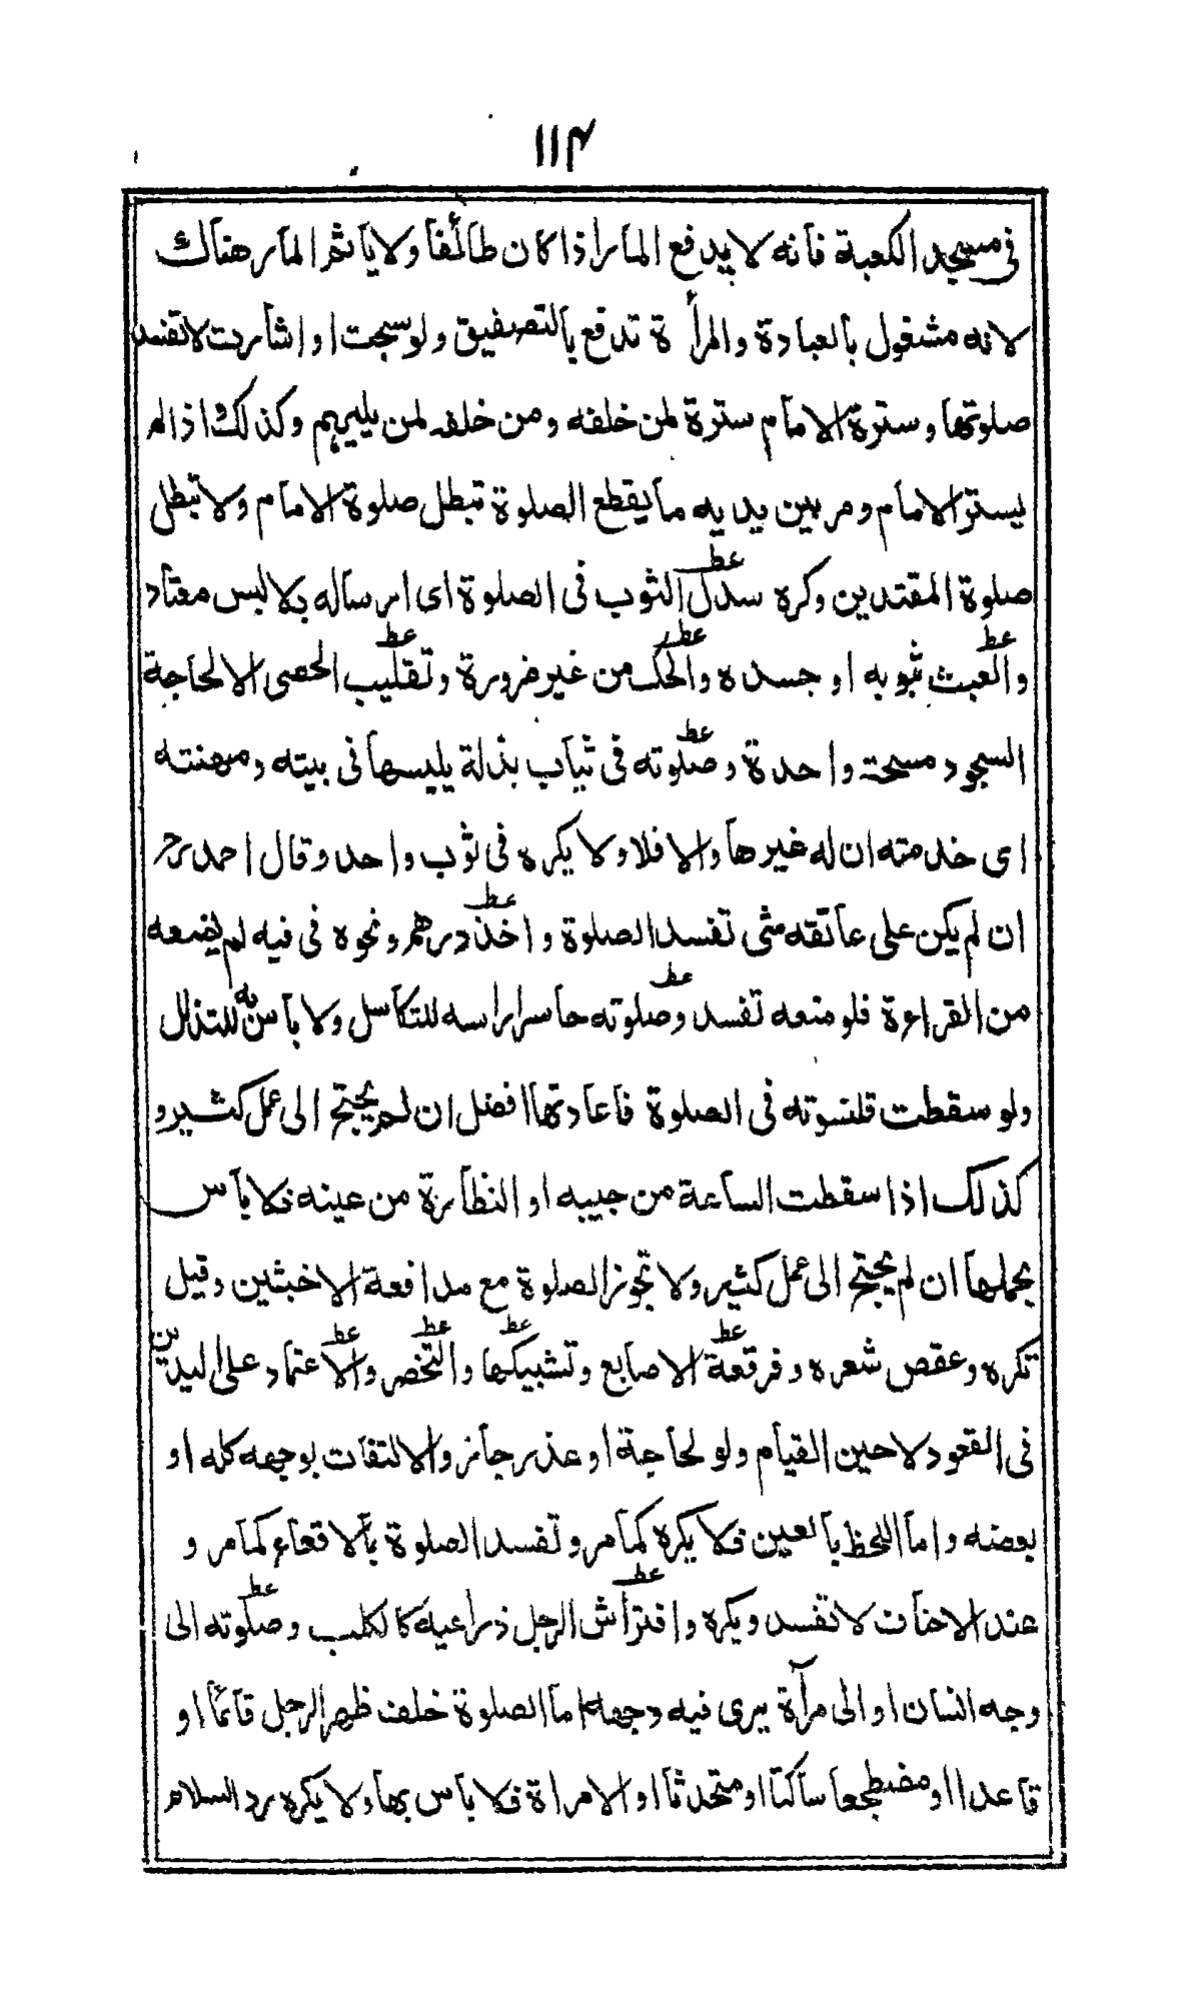 ١١٤
فى مسجد الكعبة فانه لا يدفع المار اذا كان طائفا ولا ياثم المار هناك
لانه مشغول بالعبادة والمرأة تدفع بالتصفيق ولو سبحت او اشارت لا تفسد
صلوتها وسترة الامام سترة لمن خلفه ومن خلفه لمن يليهم وكذلك اذا لم
يستتر الامام ومر بين يديه ما يقطع الصلوة تبطل صلوة الامام ولا تبطل
صلوة المقتدين وكره سدل الثوب فى الصلوة اى ارساله بلا لبس معتاد
والعبث بثوبه او جسده والحك من غير ضرورة وتقليب الحصى الا لحاجة
السجود مسحة واحدة وصلوته فى ثياب بذلة يلبسها فى بيته ومهنته
اى خدمته ان له غيرها والا فلا ولا يكره فى ثوب واحد وقال احمد رح
ان لم يكن على عاتقه شى تفسد الصلوة واخذ درهم ونحوه فى فيه لم يمنعه
من القراءة فلو منعه تفسد وصلوته حاسرا راسه للتكاسل ولا باس به للتذلل
ولو سقطت قلنسوته فى الصلوة فاعادتها افضل ان لم يحتج الى عمل كثير و
كذلك اذا سقطت الساعة من جيبه او النظارة من عينه فلا باس
بحملها ان لم يحتج الى عمل كثير ولا تجوز الصلوة مع مدافعة الاخبثين وقيل
تكره وعقص شعره وفرقعة الاصابع وتشبيكها والتخصر والاعتماد على اليدين
فى القعود لا حين القيام ولو لحاجة او عذر جائز والالتفات بوجهه كله او
بعضه واما اللحظ بالعين فلا يكره كما مر وتفسد الصلوة بالاقعاء كما مر و
عند الاحناف لا تفسد ويكره وافتراش الرجل ذراعيه كالكلب وصلوته الى
وجه انسان او الى مرآة يرى فيه وجهه اما الصلوة خلف ظهر الرجل قائما او
قاعدا او مضطجعا ساكتا او متحدثا او الامراة فلا باس بها ولا يكره رد السلام